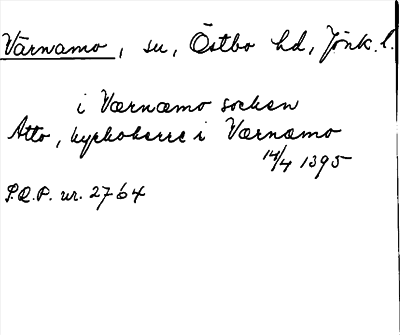 Värnamo, sn, Östbo hd, Jönk. l.
i Værnæmo socken
Atto, kyrkoherre i Værnæmo
14/4 1395
S.R.P. nr. 2764